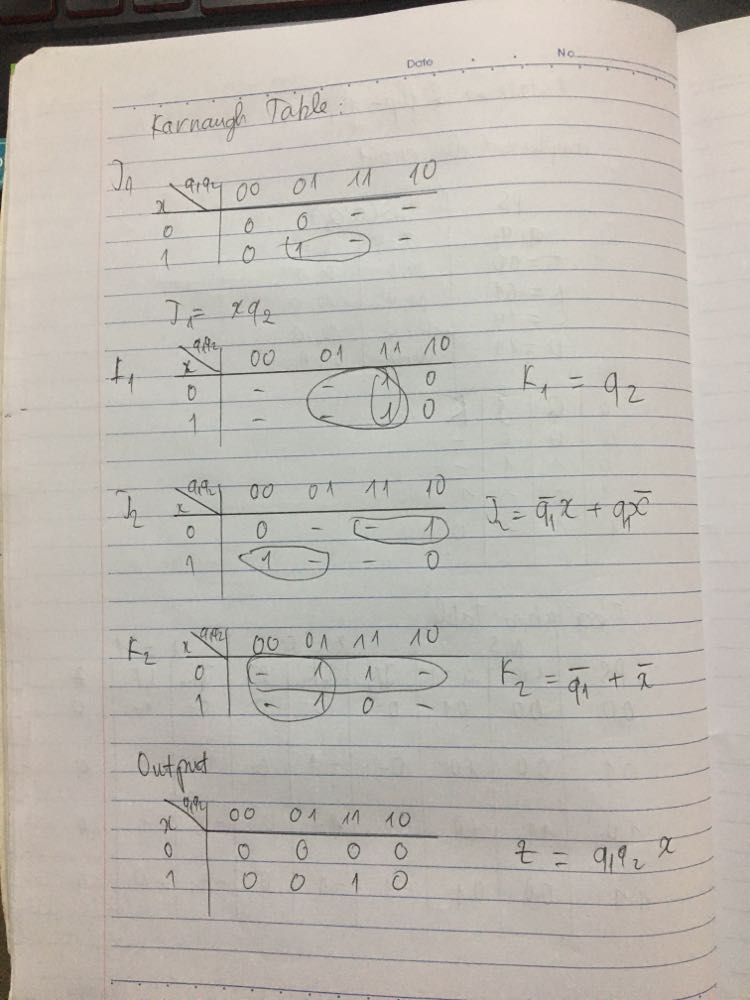 Date No.
Karnaugh Table:
J1
x q1q2 00 01 11 10
0 0 0 - -
1 0 1 - -
J1 = xq2
K1
x q1q2 00 01 11 10
0 - - 1 0
1 - - 1 0
K1 = q2
J2
x q1q2 00 01 11 10
0 0 - - 1
1 1 - - 0
J2 = q̄1x + q1x̄
K2
x q1q2 00 01 11 10
0 - 1 1 -
1 - 1 0 -
K2 = q̄1 + x̄
Output
x q1q2 00 01 11 10
0 0 0 0 0
1 0 0 1 0
z = q1q2x